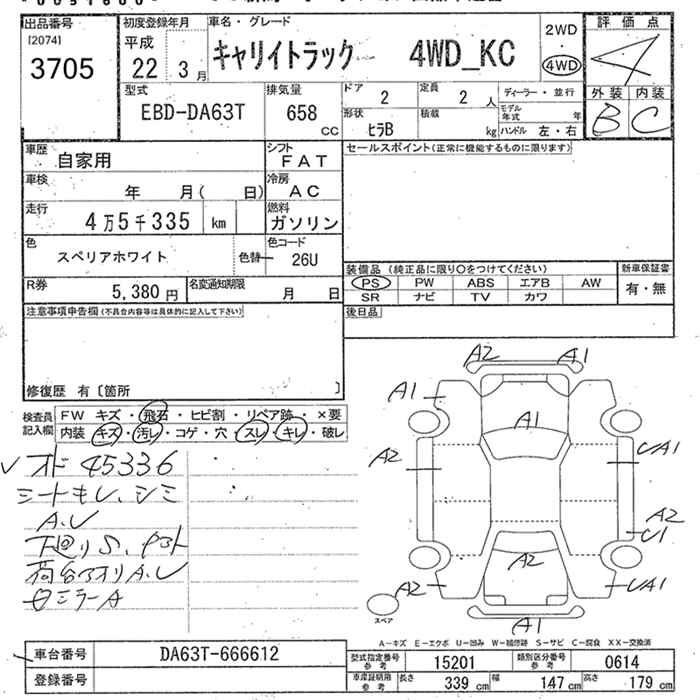 出品番号 初度登録年月 車名・グレード 評価点
[2074]
3705
平成 22 3月
キャリイトラック 4WD_KC
2WD
・
4WD
4
外装 内装
B C
型式 EBD-DA63T
排気量 658 CC
ドア 2
定員 2人
ディーラー・並行
形状 ヒラB
積載 kg
モデル年式 年
ハンドル 左・右
車歴 自家用
シフト FAT
セールスポイント(正常に機能するものに限ります)
車検 年 月( 日)
冷房 AC
走行 4万5千335 km
燃料 ガソリン
色 スペリアホワイト 色替
色コード 26U
装備品 (純正品に限り○をつけてください) 新車保証書
PS PW ABS エアB AW 有・無
SR ナビ TV カワ
R券 5,380円
名変通知期限 月 日
後日品
注意事項申告欄(不具合内容等は具体的に記入して下さい)
修復歴 有〔箇所 〕
検査員記入欄
FW キズ・飛石・ヒビ割・リペア跡・×要
内装 キズ・汚レ・コゲ・穴・スレ・キレ・破レ
オド 45336
シートキレ、シミ
A.U
下廻りS、
荷台アオリA.U
ミラーA
A2 A1
A1 A1
A2 UA1
A2
U1
A2
A2 UA1
A1
スペア
A-キズ E-エクボ U-凹み W-補修跡 S-サビ C-腐食 XX-交換済
車台番号 DA63T-666612
型式指定番号 参考 15201
類別区分番号 参考 0614
登録番号
車庫証明用 参考 長さ 339cm 幅 147cm 高さ 179cm